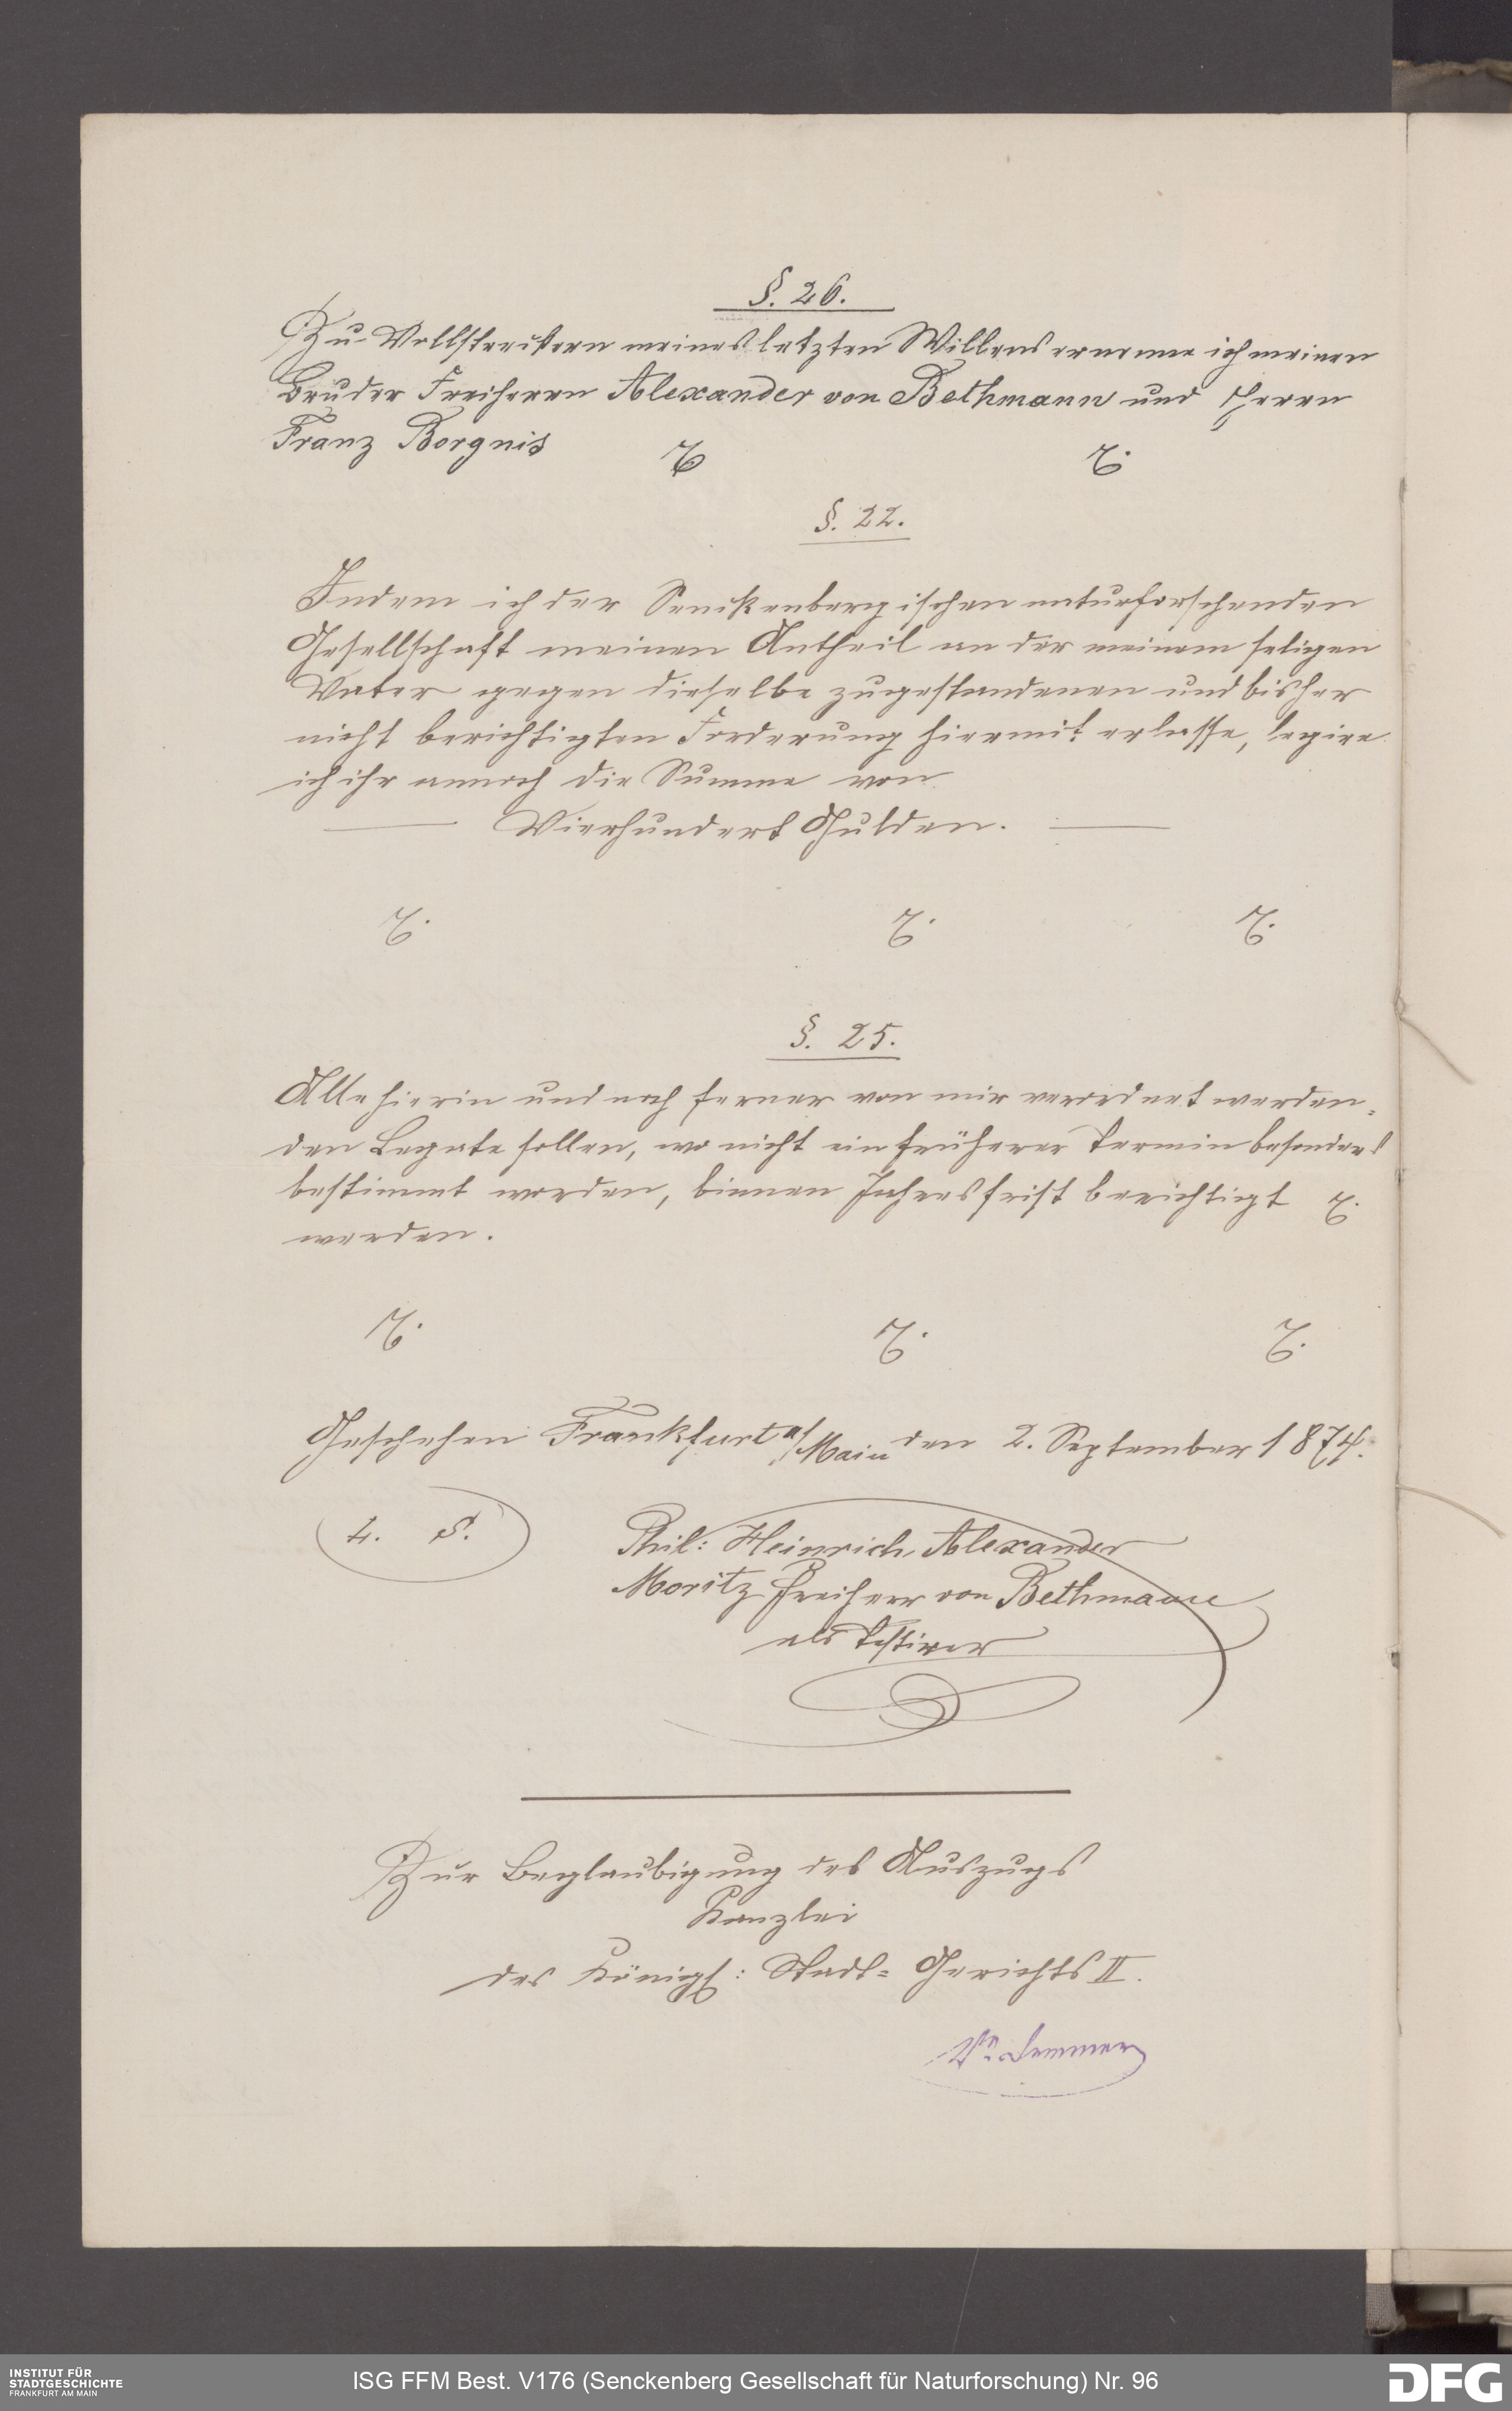 §. 26.
Zu Vollstreckern meines letzten Willens ernenne ich meinen
Bruder Freiherrn Alexander von Bethmann und Herrn
Franz Borgnis
§. 22.
Indem ich der Senckenbergischen naturforschenden
Gesellschaft meinen Antheil an der meinem seligen
Vater gegen dieselbe zugestandenen und bisher
nicht berichtigten Forderung hiermit erlasse, legire
ich ihr annoch die Summe von
Vierhundert Gulden.
§. 25.
Alle hierin und noch ferner von mir verordnet werden-
den Legate sollen, wo nicht ein früherer Termin besonders
bestimmt worden, binnen Jahresfrist berichtigt
werden.
Geschehen Frankfurt a/Main den 2. September 1874.
L. S.
Phil: Heinrich Alexander
Moritz Freiherr von Bethmann
als Testirer
Zur Beglaubigung des Auszugs
Kanzlei
des Königl: Stadt- Gerichts II.
INSTITUT FÜR
STADTGESCHICHTE
FRANKFURT AM MAIN
ISG FFM Best. V176 (Senckenberg Gesellschaft für Naturforschung) Nr. 96
DFG